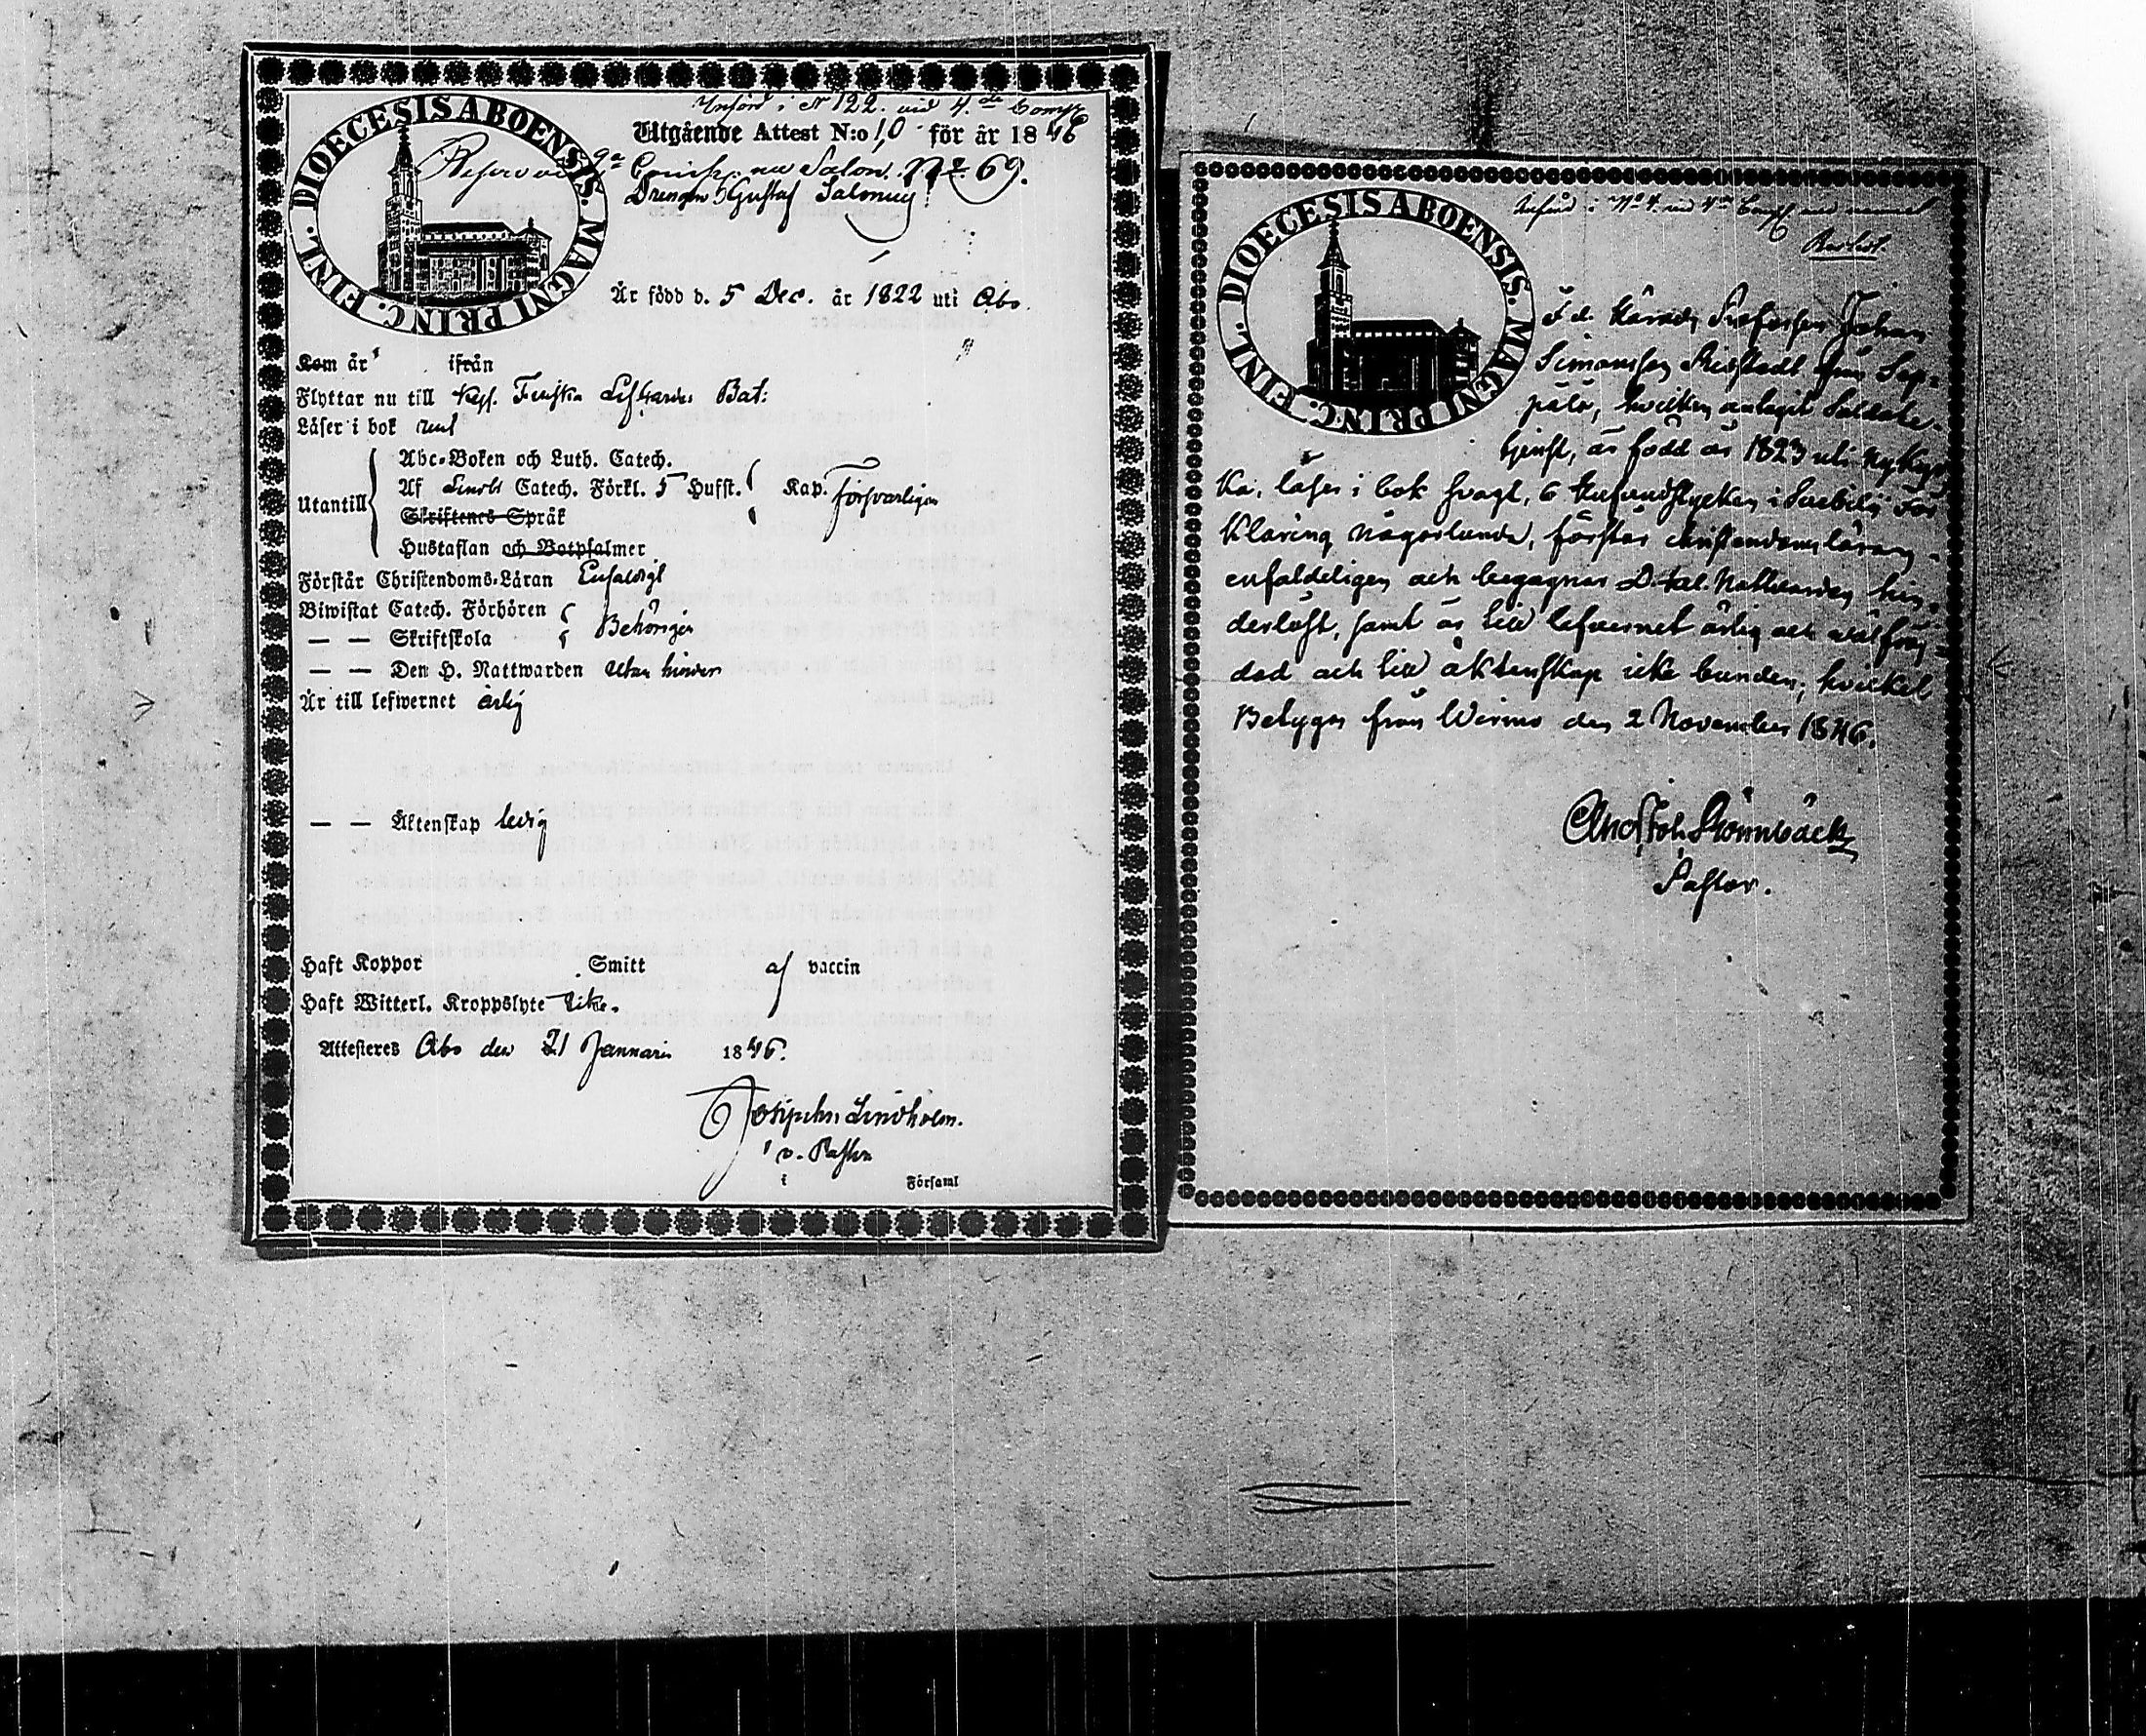 DIOECESIS ABOENSIS. MAGNI PRINC. FINL.
Införd i N 122. vid 4.de Comp
Utgående Attest N:o 10 för år 1846
No 69.
Drengen Gustaf Salonius
Är född d. 5 Dec. år 1822 uti Åbo
Kom år ifrån
Flyttar nu till Kejs. Finska Bat:
Läser i bok rent
Utantill
Abc-Boken och Luth. Catech.
Af Catech. Förkl. 5 Hufst. Kap. försvarligen
Skriftenes Språk
Hustaflan och Botpsalmer
Förstår Christendoms-Läran Enfaldigt
Biwistat Catech. Förhören
— — Skriftskola Behörigen
— — Den H. Nattwarden utan hinder
Är till lefwernet ärlig
— — Äktenskap ledig
Haft Koppor Smitt af vaccin
Haft Witterl. Kroppslyte icke.
Attesteres Åbo den 21 Januari 1846.
Josephn Lindholm.
v. Pastor
i Församl
DIOECESIS ABOENSIS. MAGNI PRINC. FINL.
Införd i No 4. vid 4de Comp med namnet
F. d. Johan
Simonsson från Sep-
pälä, hvilken antagit Soldats-
tjenst, är född år 1823 uti Nykyr-
ka, läser i bok svagt, 6 hufvudstycken i Svebilii För
klaring någorlunda, förstår christendomsläran
enfaldeligen och begagnar D. hel. Nattvarden hin-
derlöst, samt är till lefvernet ärlig och välfräj-
dad och till äktenskap icke bunden; hvilket
Betygas från Wirmo den 2 November 1846.
And. Joh. Rönnbäck
Pastor.